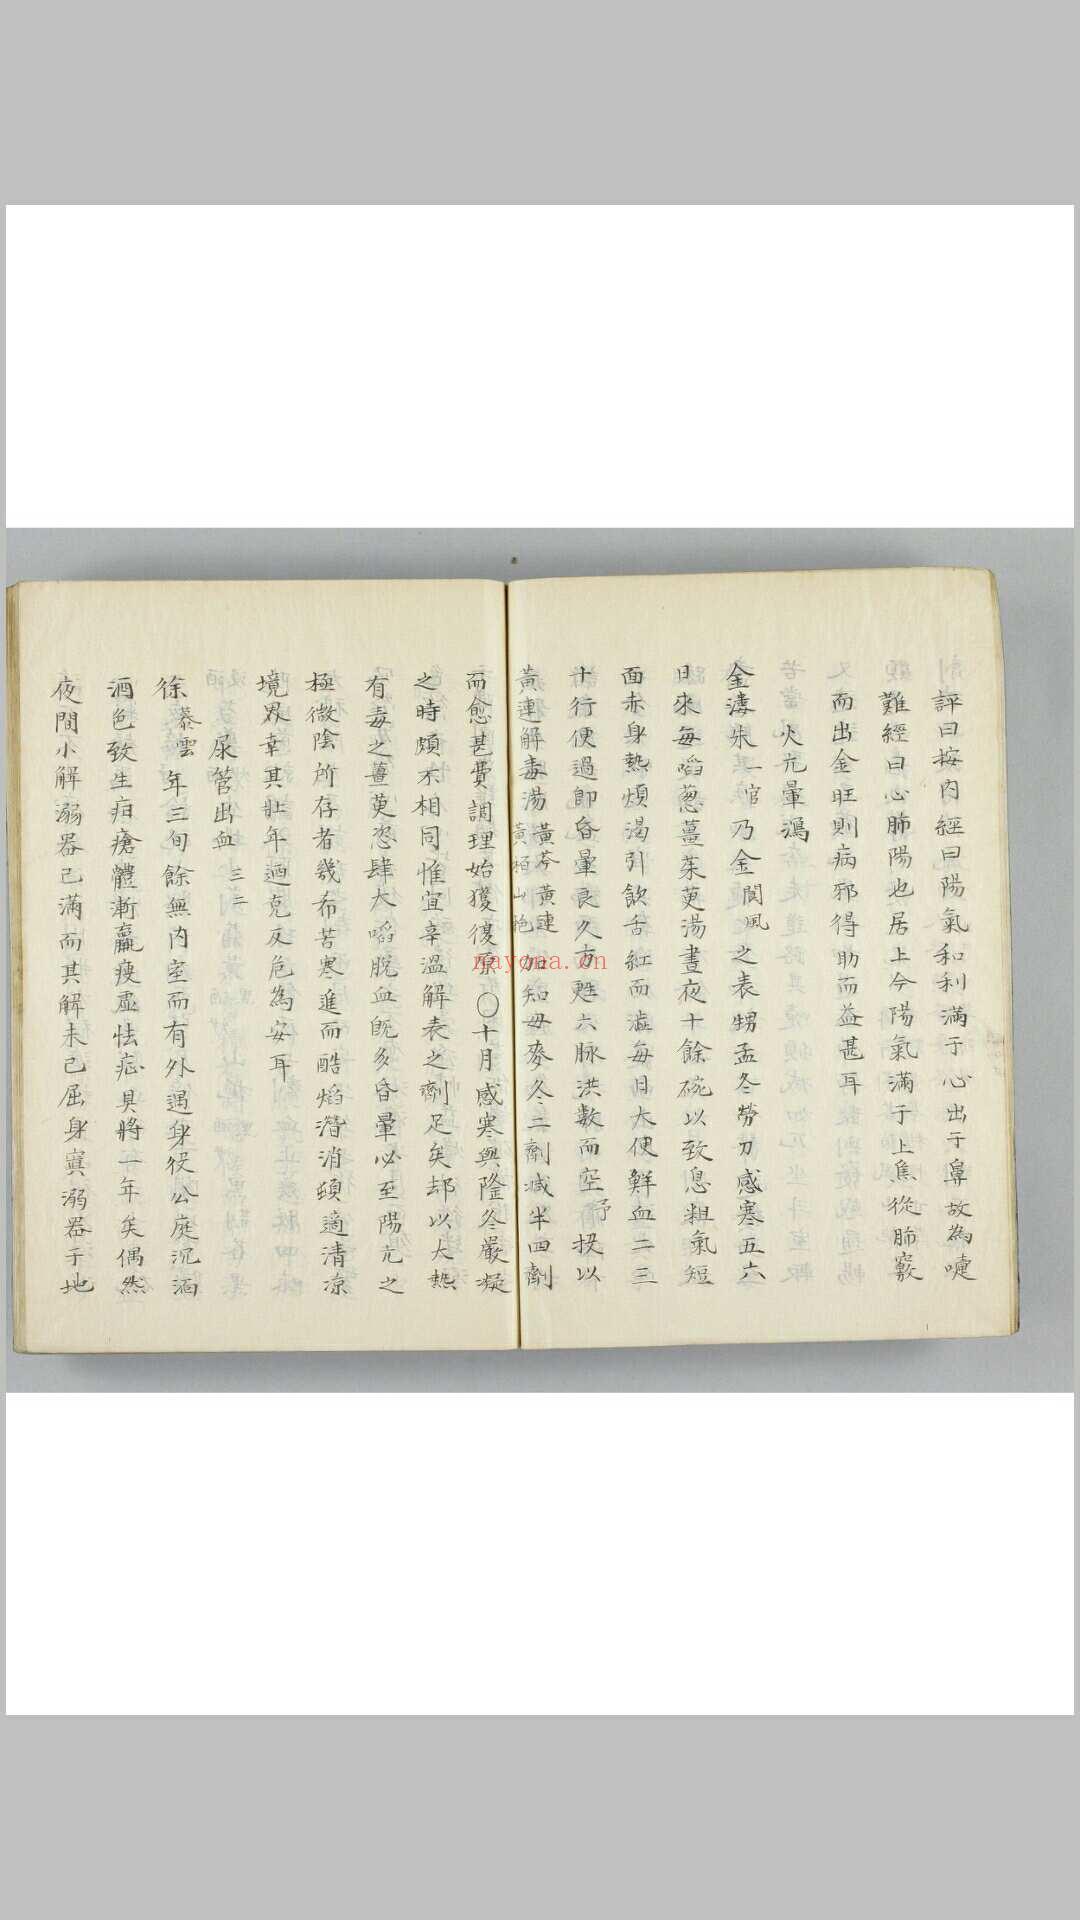 評曰按內經曰陽氣和利滿于心出于鼻故為嚏
難經曰心肺陽也居上今陽氣滿于上焦從肺竅
而出金旺則病邪得助而益甚耳
火亢暈瀉
金溝朱一倌乃金閬風之表甥孟冬勞力感寒五六
日來每啗葱薑茱萸湯晝夜十餘碗以致息粗氣短
面赤身熱煩渴引飲舌紅而澁每日大便鮮血二三
十行便過即昏暈良久方甦六脉洪數而空予投以
黃連解毒湯黃芩黃連黃栢山梔加知母麥冬二劑減半四劑
而愈甚費調理始獲復原〇十月感寒與隆冬嚴凝
之時頗不相同惟宜辛溫解表之劑足矣却以大熱
有毒之薑萸恣肆大啗脫血既多昏暈必至陽亢之
極微陰所存者幾希苦寒進而酷焰潛消頓適清凉
境界幸其壯年廼克反危為安耳
尿管出血 三三
徐慕雲年三旬餘無內室而有外遇身役公庭沉湎
酒色致生疳瘡體漸羸瘦虛怯症具將一年矣偶然
夜間小解溺器已滿而其解未已屈身寘溺器于地
nayona.cn